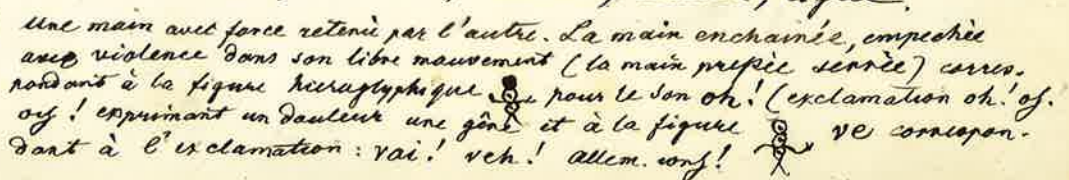 Une main avec force retenue par l'autre. La main enchainée, empechée
avec violence dans son libre mauvement (la main presée serrée) corres-
pondant à la figure hieroglyphique pour le son oh! (exclamation oh! of.
of! exprimant un douleur une gêne et à la figure ve correspon-
dant à l'exclamation: vai! veh! allem.